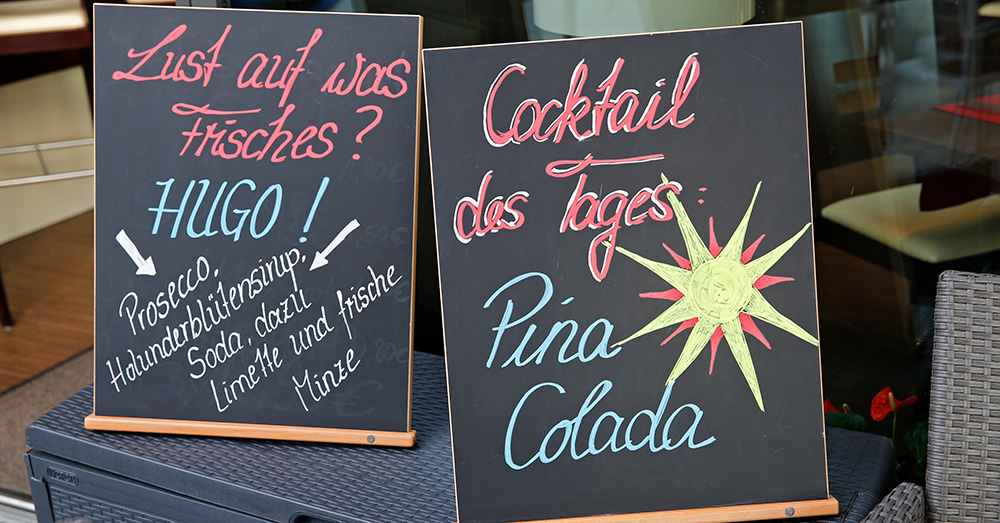 Lust auf was
frisches?
HUGO!
Prosecco,
Holunderblütensirup,
Soda, dazu
Limette und frische
Minze
Cocktail
des Tages:
Pina
Colada